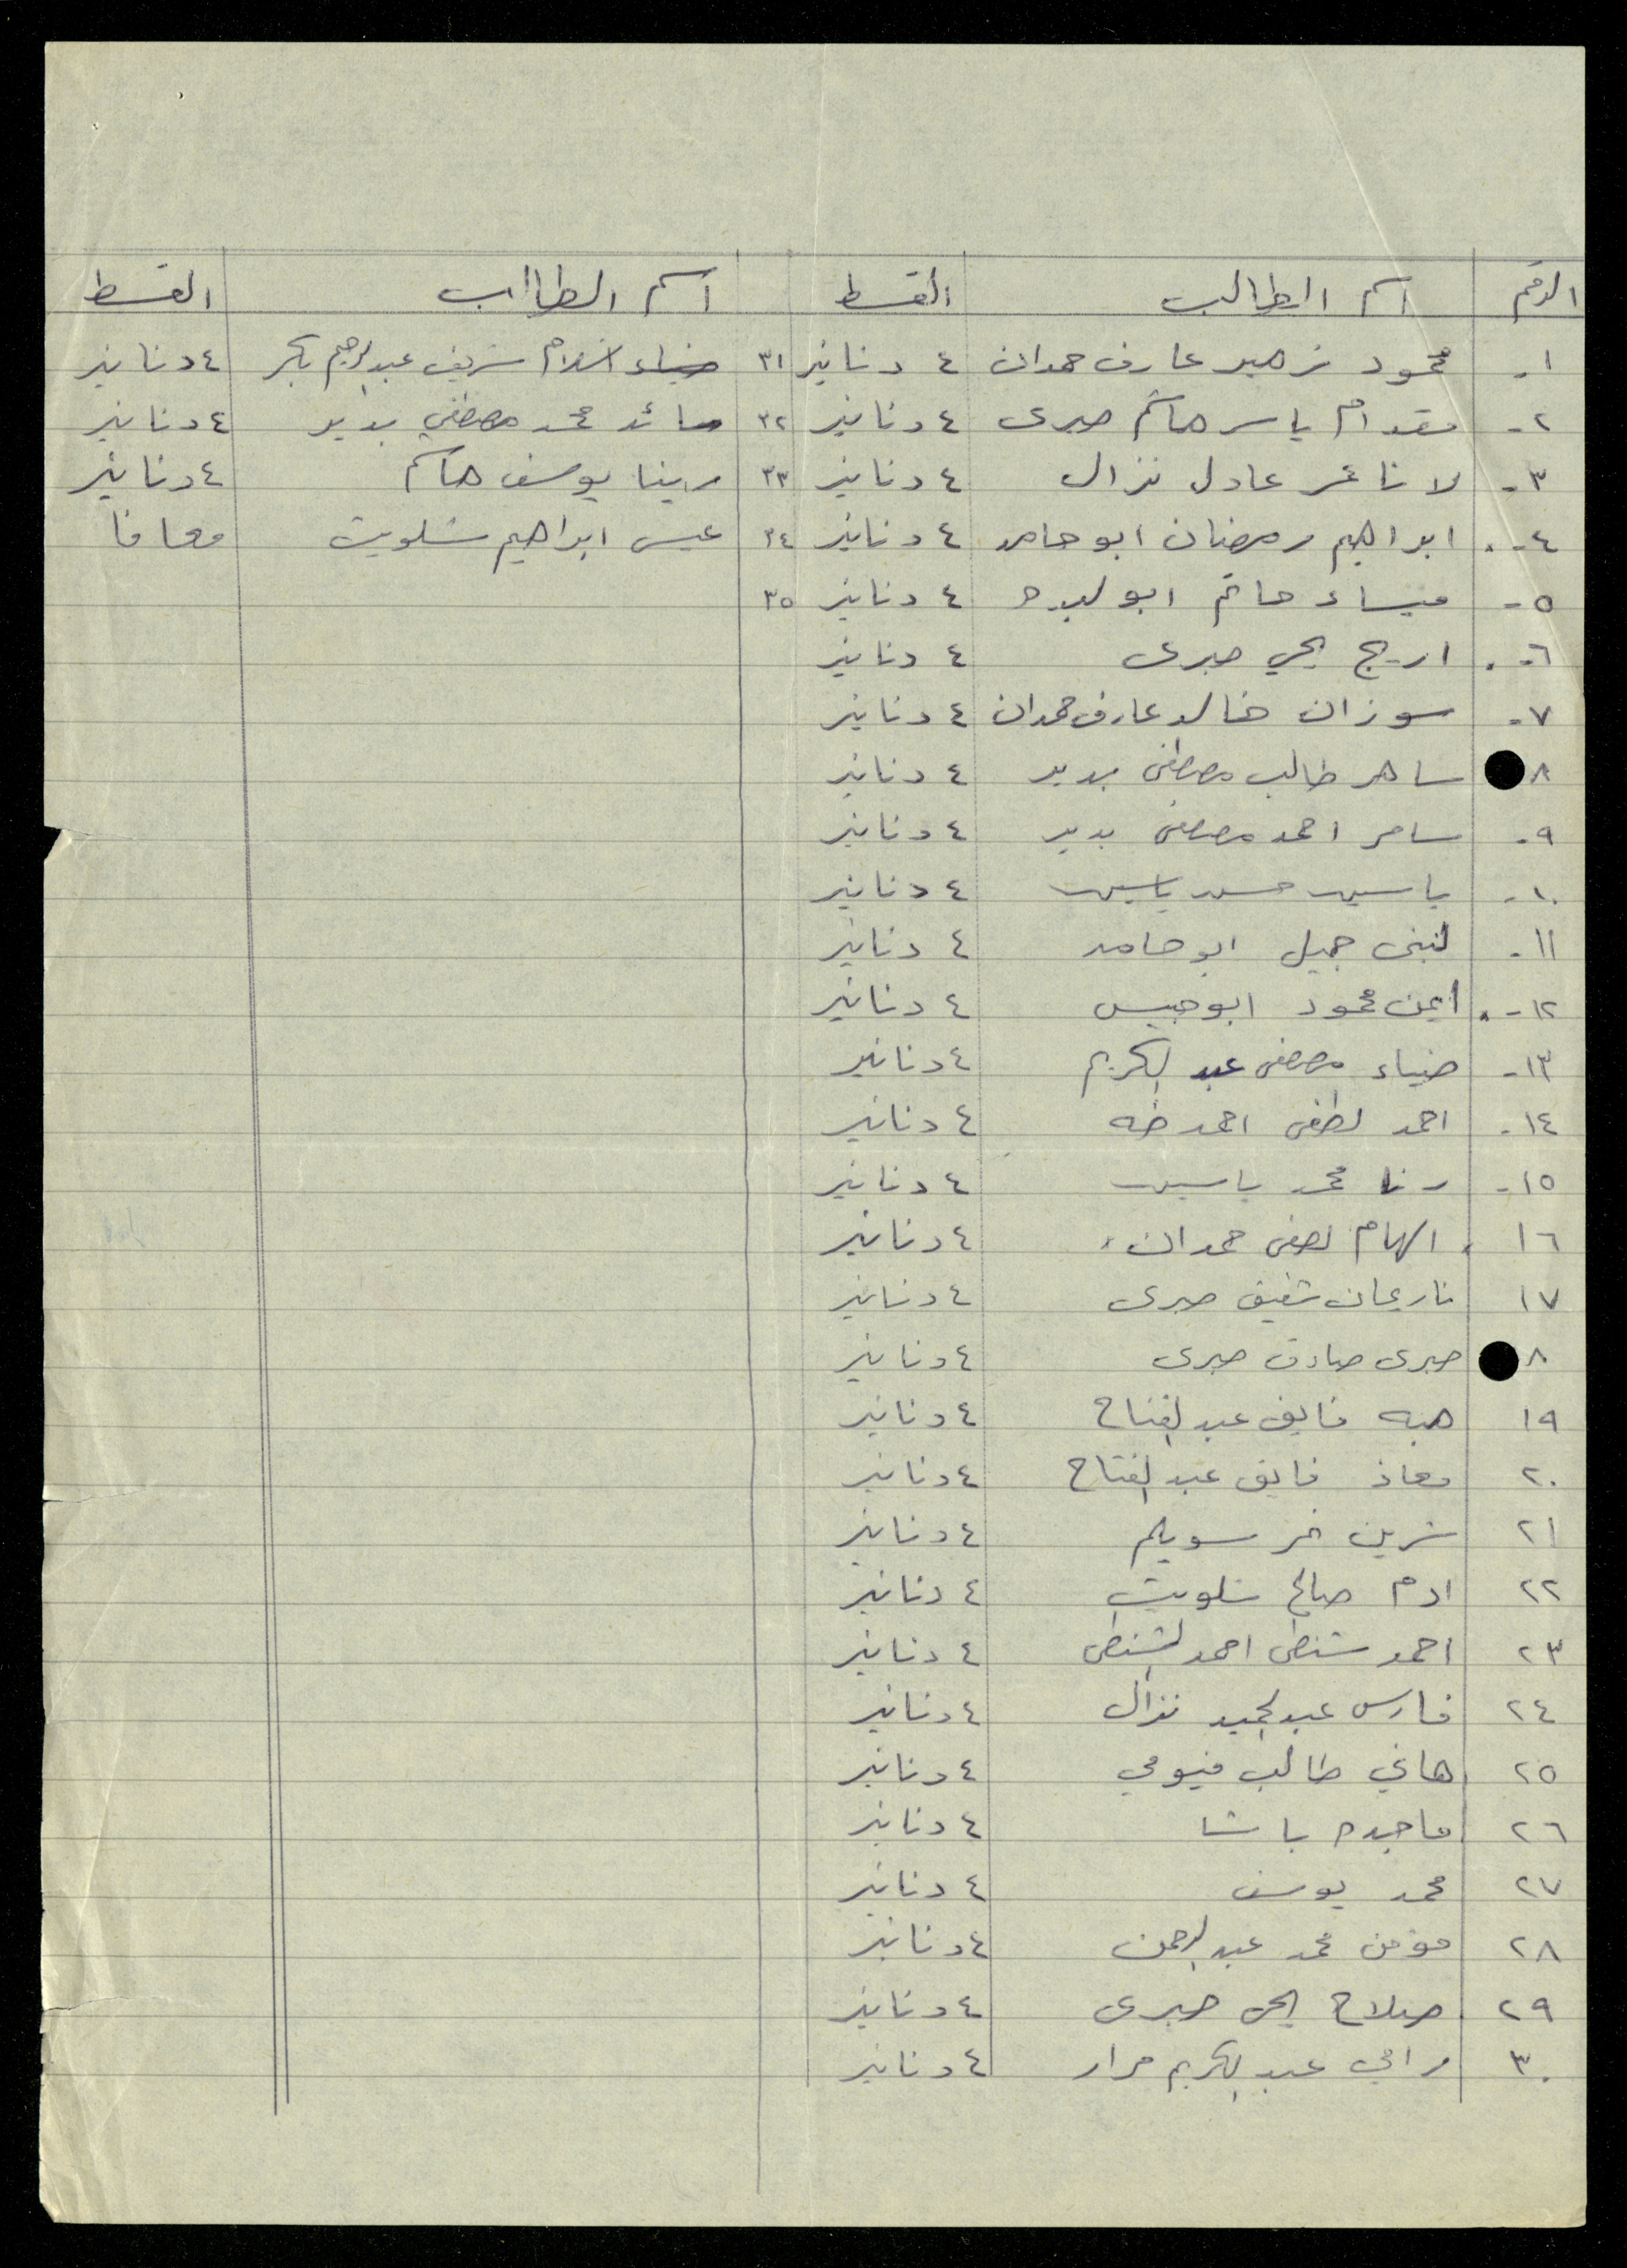 الرقم اسم الطالب القسط اسم الطالب القسط
١- محمود زهير عارف حمدان ٤ دنانير ٣١ ضياء اسلام شريف عبدالرحيم بكر ٤ دنانير
٢- مقدام ياسر هاشم صبرى ٤ دنانير ٣٢ سائد محمد مصطفي بدير ٤ دنانير
٣- لانا عمر عادل نزال ٤ دنانير ٣٣ رينا يوسف هاشم ٤ دنانير
٤- ابراهيم رمضان ابو حامد ٤ دنانير ٣٤ عيسى ابراهيم شلويت معافا
٥- ميساء حاتم ابو لبده ٤ دنانير ٣٥
٦- اريج يحي صبرى ٤ دنانير
٧- سوزان خالد عارف حمدان ٤ دنانير
٨ ساهر طالب مصطفى بدير ٤ دنانير
٩- سامر احمد مصطفى بدير ٤ دنانير
١٠- ياسين حسن ياسين ٤ دنانير
١١- لبنى جميل ابو حامد ٤ دنانير
١٢- ايمن محمود ابو حبيس ٤ دنانير
١٣- ضياء مصطفى عبد الكريم ٤ دنانير
١٤- احمد لطفى احمد طه ٤ دنانير
١٥- رنا محمد ياسين ٤ دنانير
١٦ الهام لطفى حمدان ٤ دنانير
١٧ ناريمان شفيق صبرى ٤ دنانير
٨ صبرى صادق صبرى ٤ دنانير
١٩ هبه فايق عبد الفتاح ٤ دنانير
٢٠ معاذ فايق عبد الفتاح ٤ دنانير
٢١ شرين سويلم ٤ دنانير
٢٢ ادم صالح شلويت ٤ دنانير
٢٣ احمد شنطى احمد الشنطى ٤ دنانير
٢٤ فارس عبد الحميد نزال ٤ دنانير
٢٥ هاني طالب فيومي ٤ دنانير
٢٦ ماجده باشا ٤ دنانير
٢٧ محمد يوسف ٤ دنانير
٢٨ مؤمن محمد عبد الرحمن ٤ دنانير
٢٩ صلاح يحي صبرى ٤ دنانير
٣٠ رامي عبد الكريم مرار ٤ دنانير